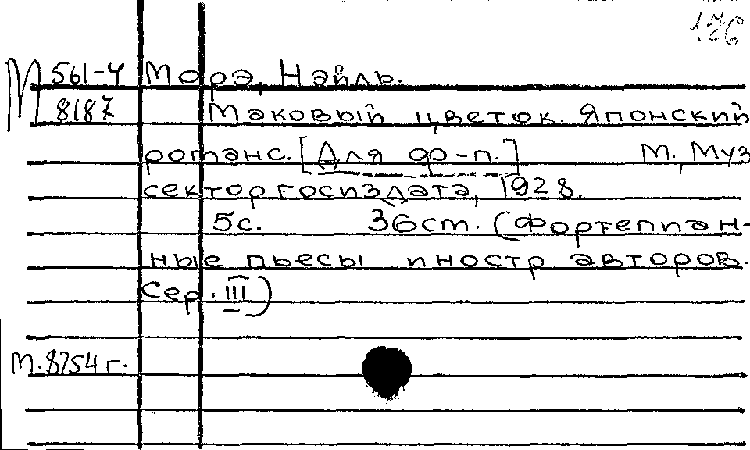 М 561-4 Морэ, Найль.
8187 Маковый цветок. Японский
романс. [Для ф-п.] М., Муз
сектор госиздата, 1928.
5с. 36см. (Фортепиан-
ные пьесы иностр авторов.
Сер. III)
М.8254 г.